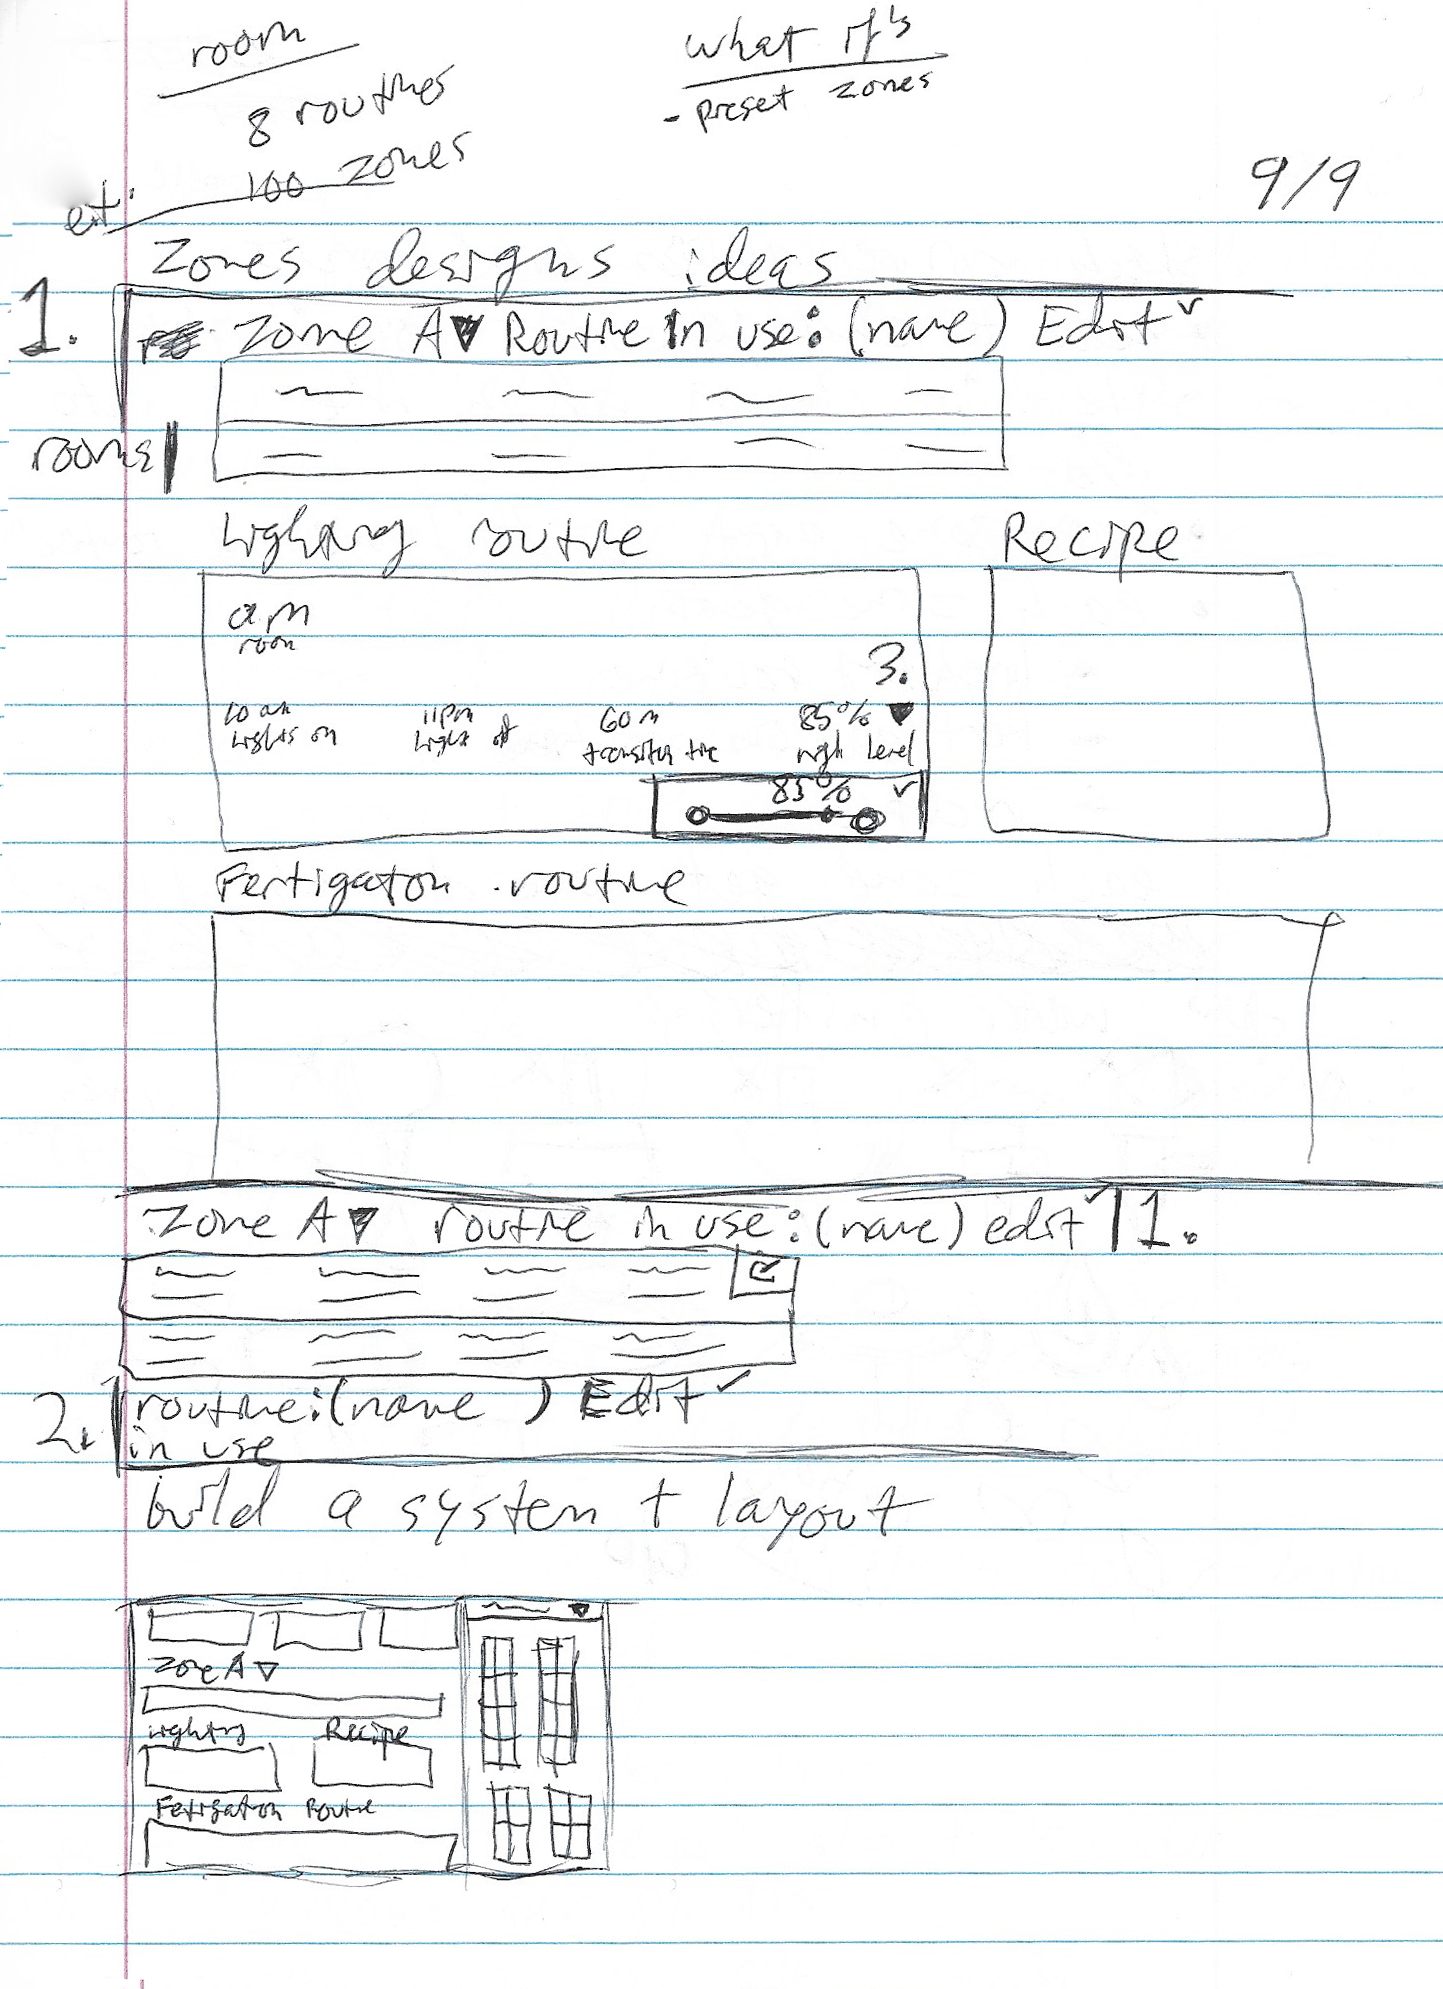 room
8 routines
100 zones
what if's
- Preset zones
9/9
ext.
Zones designs ideas
1.
Zone A▼ Routine In use: (name) Edit ✓
rooms
Lighting routine
Recipe
am
room
3.
10 am
Lights on
11pm
Light off
60 m
transition time
85% ▼
high Level
85% ✓
Fertigation routine
Zone A▼ routine in use: (name) edit ✓ 1.
R
2. routine: (name ) Edit ✓
in use
build a system + layout
Zone A ▽
Lighting
Recipe
Fertigation Routine